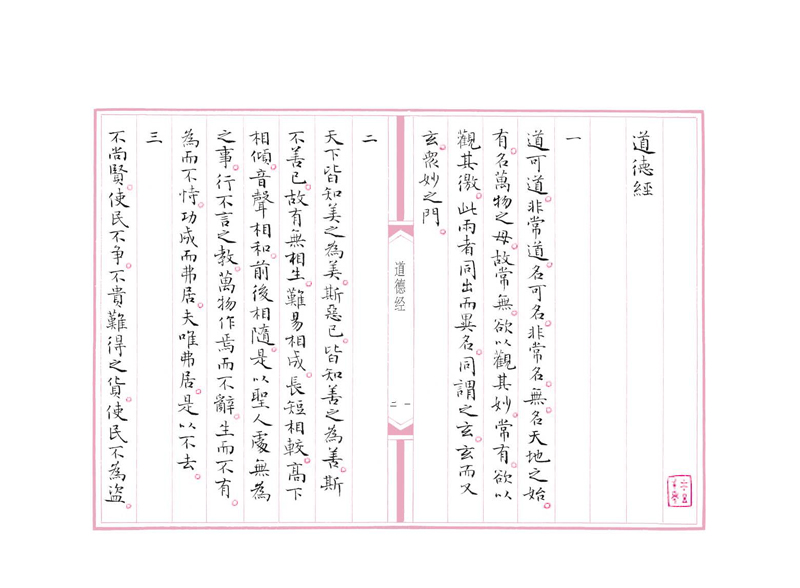 道德經
一
道可道。非常道。名可名。非常名。無名天地之始。
有名萬物之母。故常無。欲以觀其妙。常有。欲以
觀其徼。此兩者同出而異名。同謂之玄。玄而又
玄。衆妙之門。
道德经
二 一
二
天下皆知美之為美。斯惡已。皆知善之為善。斯
不善已。故有無相生。難易相成。長短相較。高下
相傾。音聲相和。前後相隨。是以聖人處無為
之事。行不言之教。萬物作焉而不辭。生而不有。
為而不恃。功成而弗居。夫唯弗居。是以不去。
三
不尚賢。使民不争。不貴難得之貨。使民不為盜。